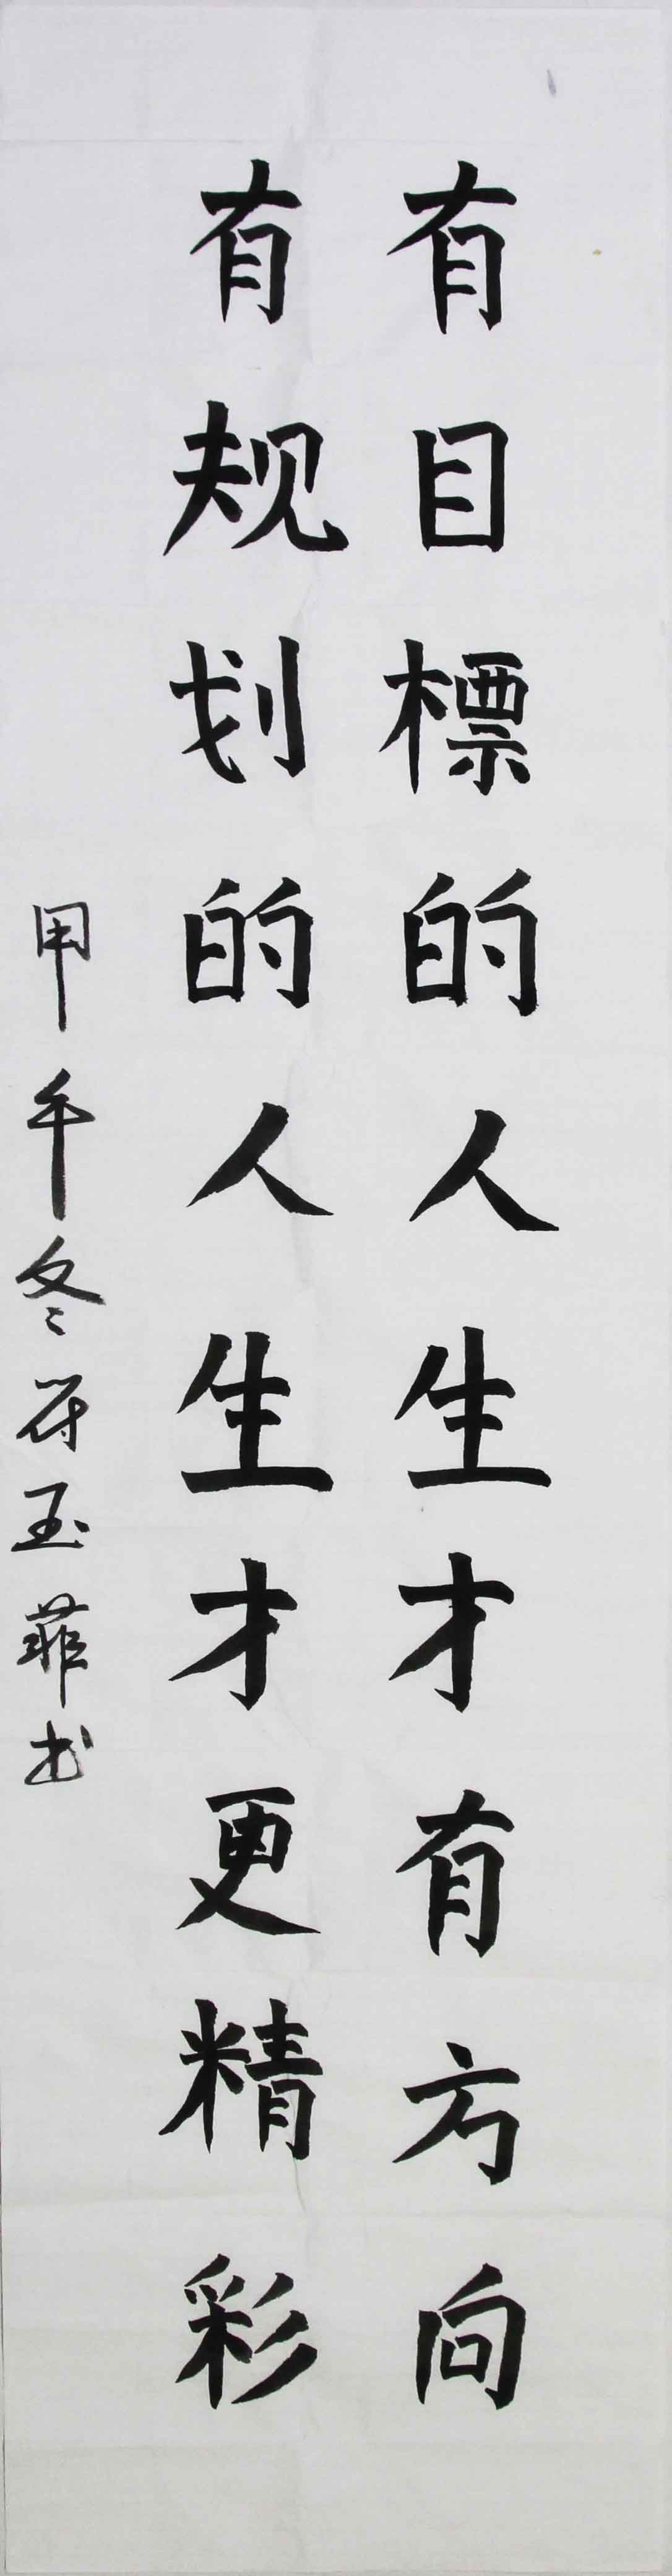 有目標的人生才有方向
有规划的人生才更精彩
甲午冬符玉菲书